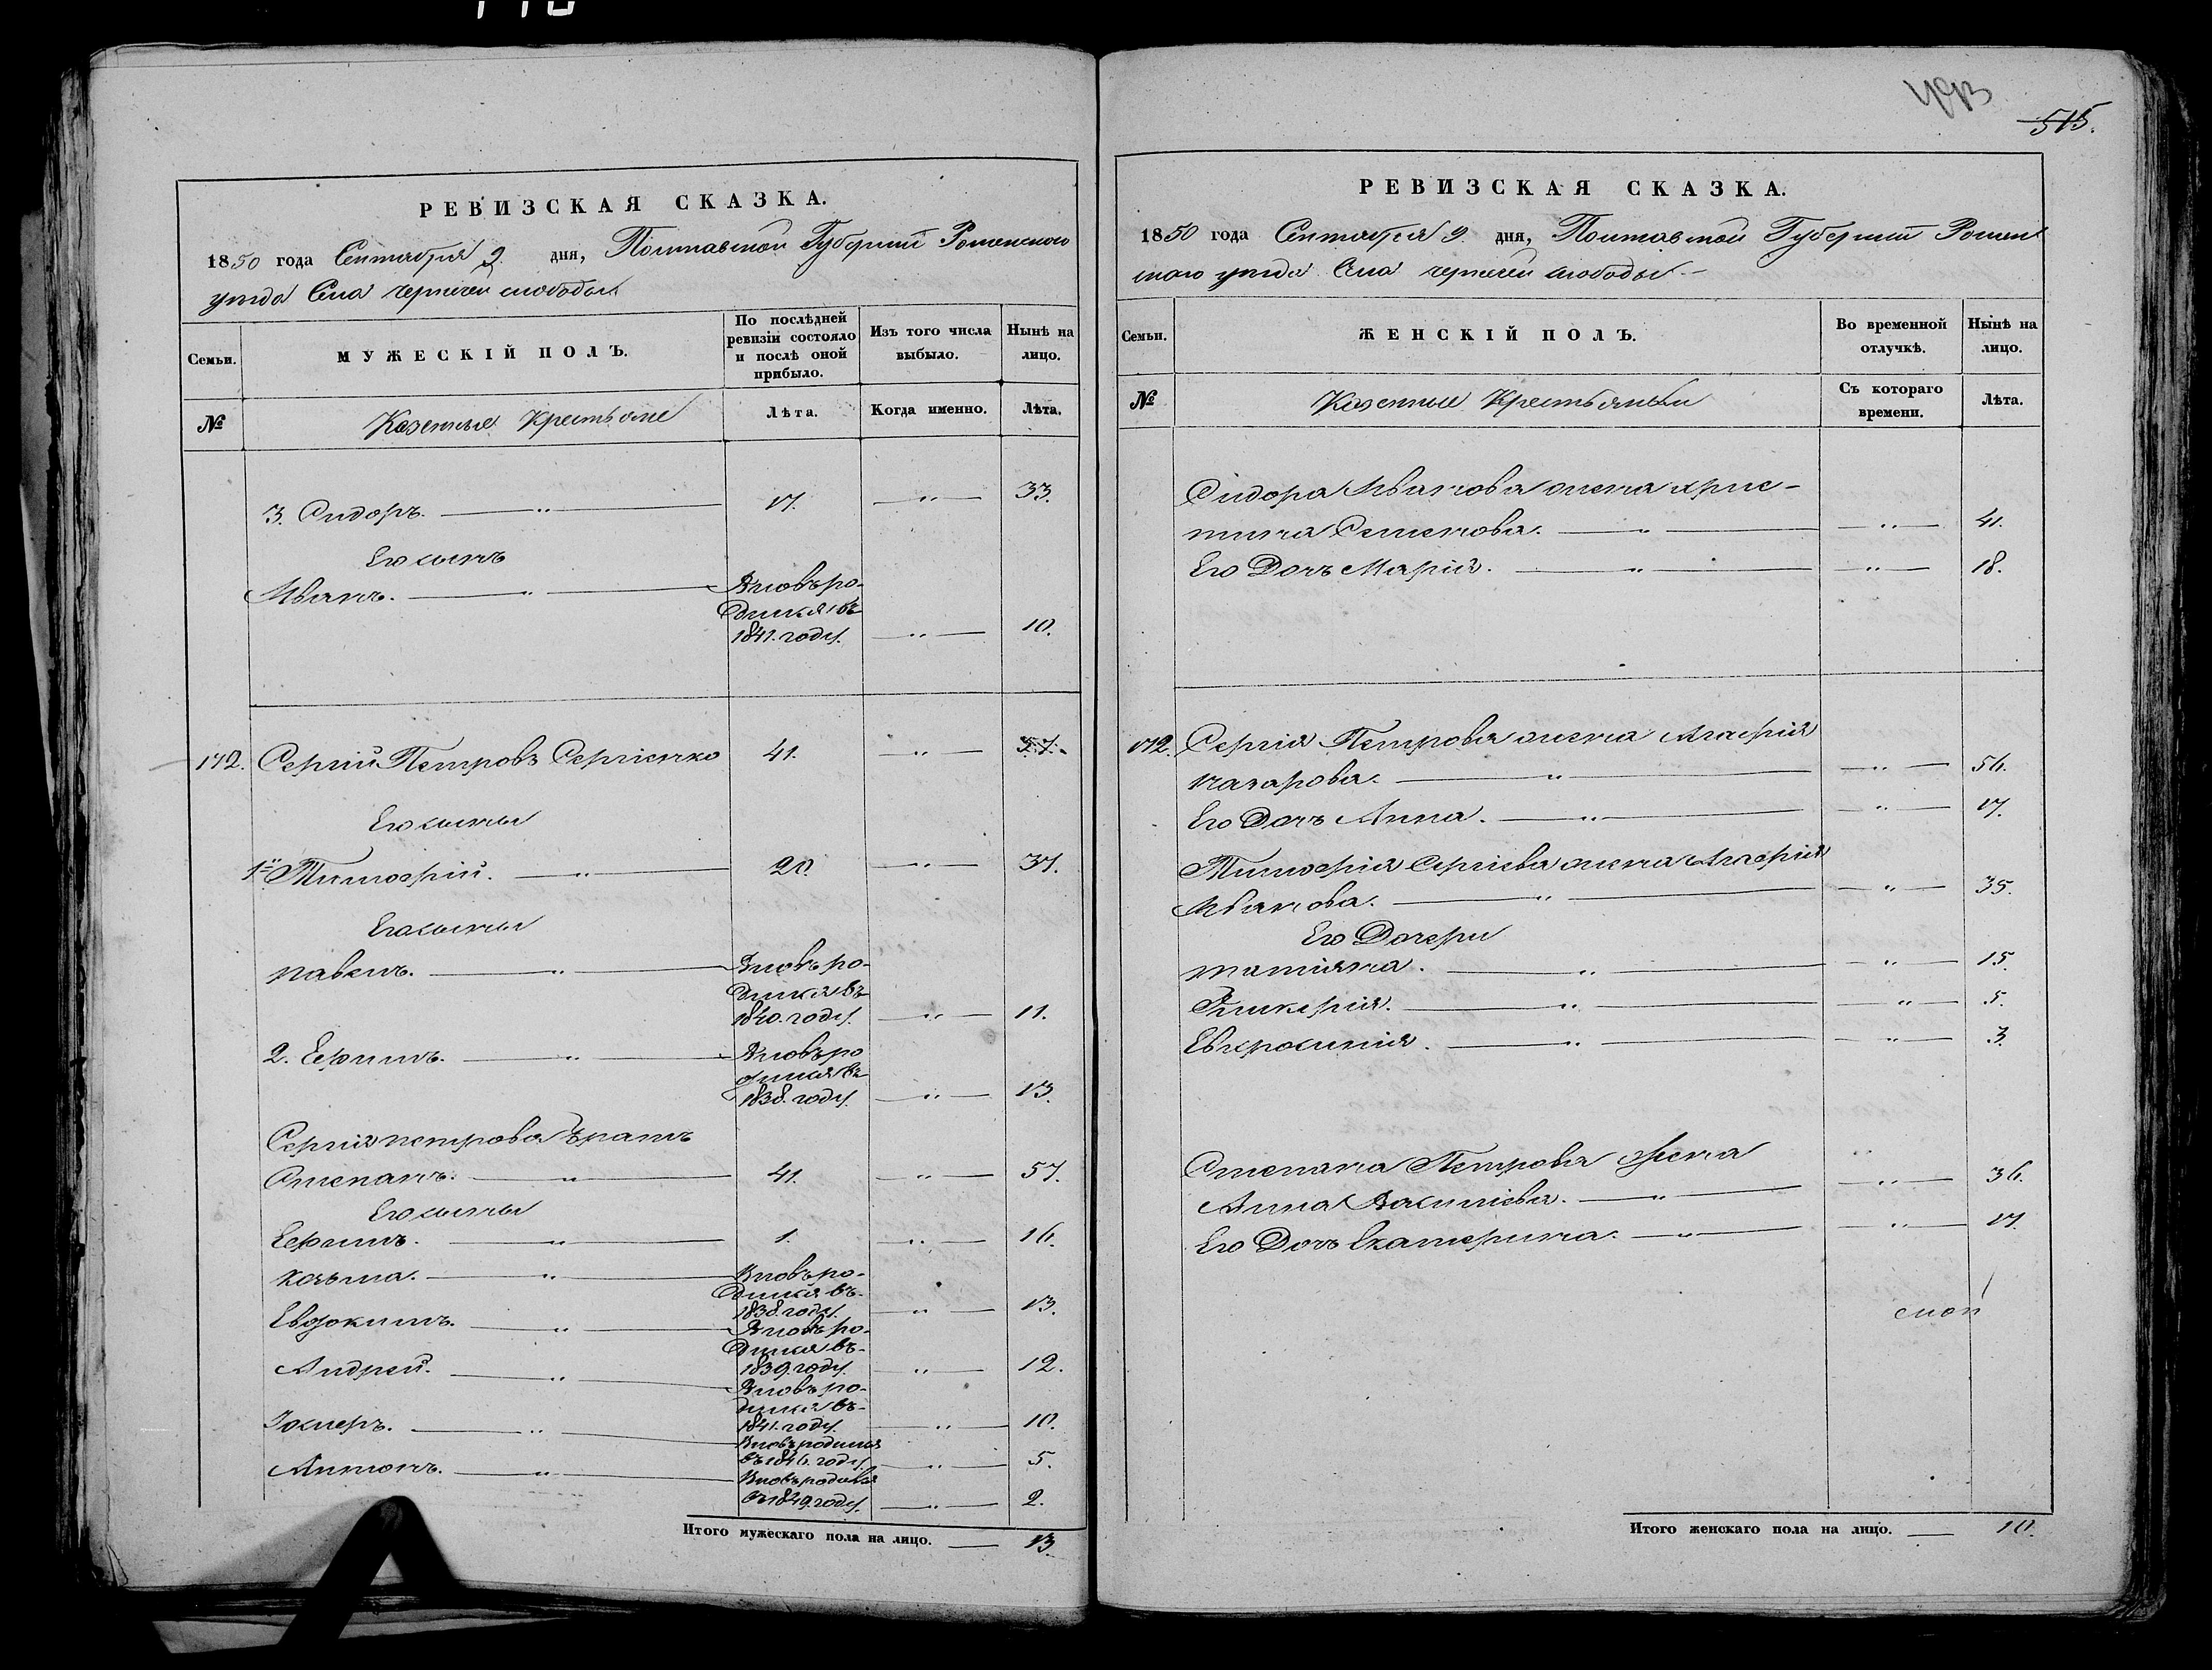 515.
РЕВИЗСКАЯ СКАЗКА.
1850 года Сентября 9 дня, Полтавской Губернии Роменского
уезда Села чернечей слободы
Семьи.
МУЖЕСКІЙ ПОЛЪ.
По послѣдней ревизіи состояло и послѣ оной прибыло.
Изъ того числа выбыло.
Нынѣ на лицо.
№
Казенные Крестьяне
Лѣта.
Когда именно.
Лѣта.
3. Сидоръ. — " — 17. — " — 33.
Его сынъ
Иванъ. — " — Вновь ро-
дился въ
1841. году. — " — 10.
172. Сергій Петровъ Сергіенко 41. — " — 57.
Его сыны
1й Тимофій. — " — 20. — " — 37.
Его сыны
павелъ. — " — Вновь ро-
дился въ
1840. году. — " — 11.
2. Ефимъ. — " — Вновь ро
дился въ
1838. году. — " — 13.
Сергія петрова братъ
Степанъ. — " — 41. — " — 57.
Его сыны
Ефимъ. — " — 1. — " — 16.
козьма. — " — Вновь ро-
дился въ
1838. году. — " — 13.
Евдокимъ. — " — Вновь ро-
дился въ
1839. году. — " — 12.
Андрей. — " — Вновь ро-
дился въ
1841. году. — " — 10.
— " — Вновь родился
въ 1846. году. — " — 5.
Антонъ. — " — Вновь родився
въ 1849. году. — " — 2.
Итого мужескаго пола на лицо. — 13.
РЕВИЗСКАЯ СКАЗКА.
1850 года Сентября 9. дня, Полтавской Губернии Ромен
ского уезда Села чернечей слободы —
Семьи.
ЖЕНСКІЙ ПОЛЪ.
Во временной отлучкѣ.
Нынѣ на лицо.
№
Казенные Крестьянки
Съ котораго времени.
Лѣта.
Сидора Иванова жена хрис-
тина Семенова. — " — — " — 41.
Его Дочь Марія. — " — — " — 18.
172. Сергія Петрова жена Агафія
назарова. — " — — " — 56.
Его Дочь Анна. — " — — " — 17.
Тимофія Сергіева жена Агафія
Иванова. — " — — " — 35.
Его Дочери
татіяна. — " — — " — 15.
Гликерія. — " — — " — 5.
Евфросинія. — " — — " — 3.
Степана Петрова Жена
Анна Василіева. — " — — " — 36.
Его Дочь Екатерина. — " — — " — 17.
Итого женскаго пола на лицо. — 10.